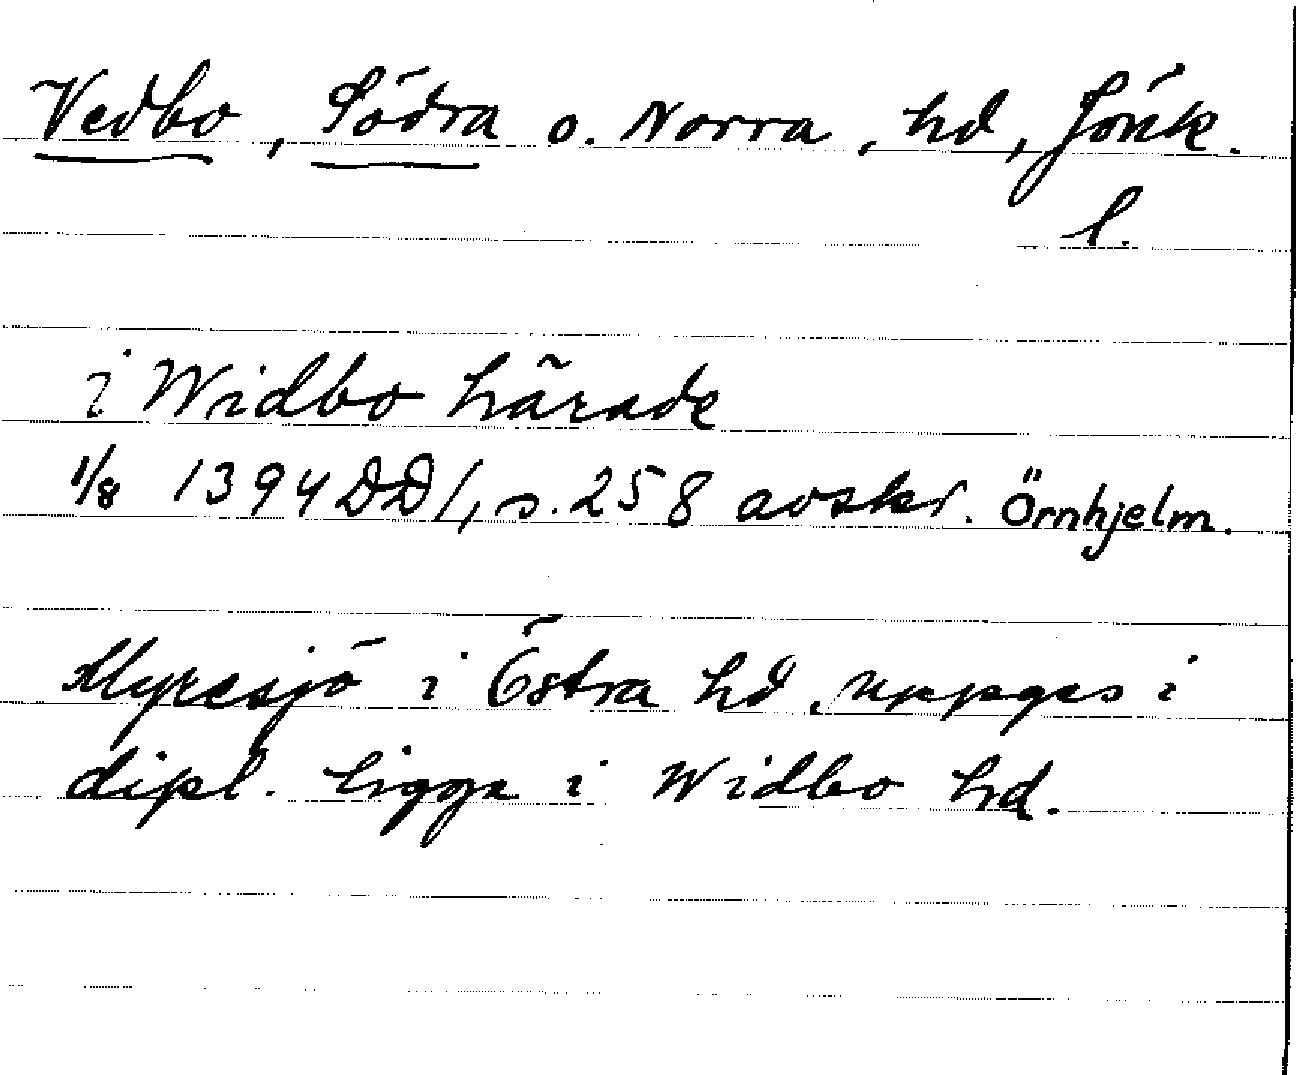 Vedbo, Södra o. Norra, hd, Jönk.
l.
i Widbo härade
1/8 1394 DD 1, s. 258 avskr. Örnhjelm.
Myresjö i Östra hd, uppges i
dipl. ligga i Widbo hd.